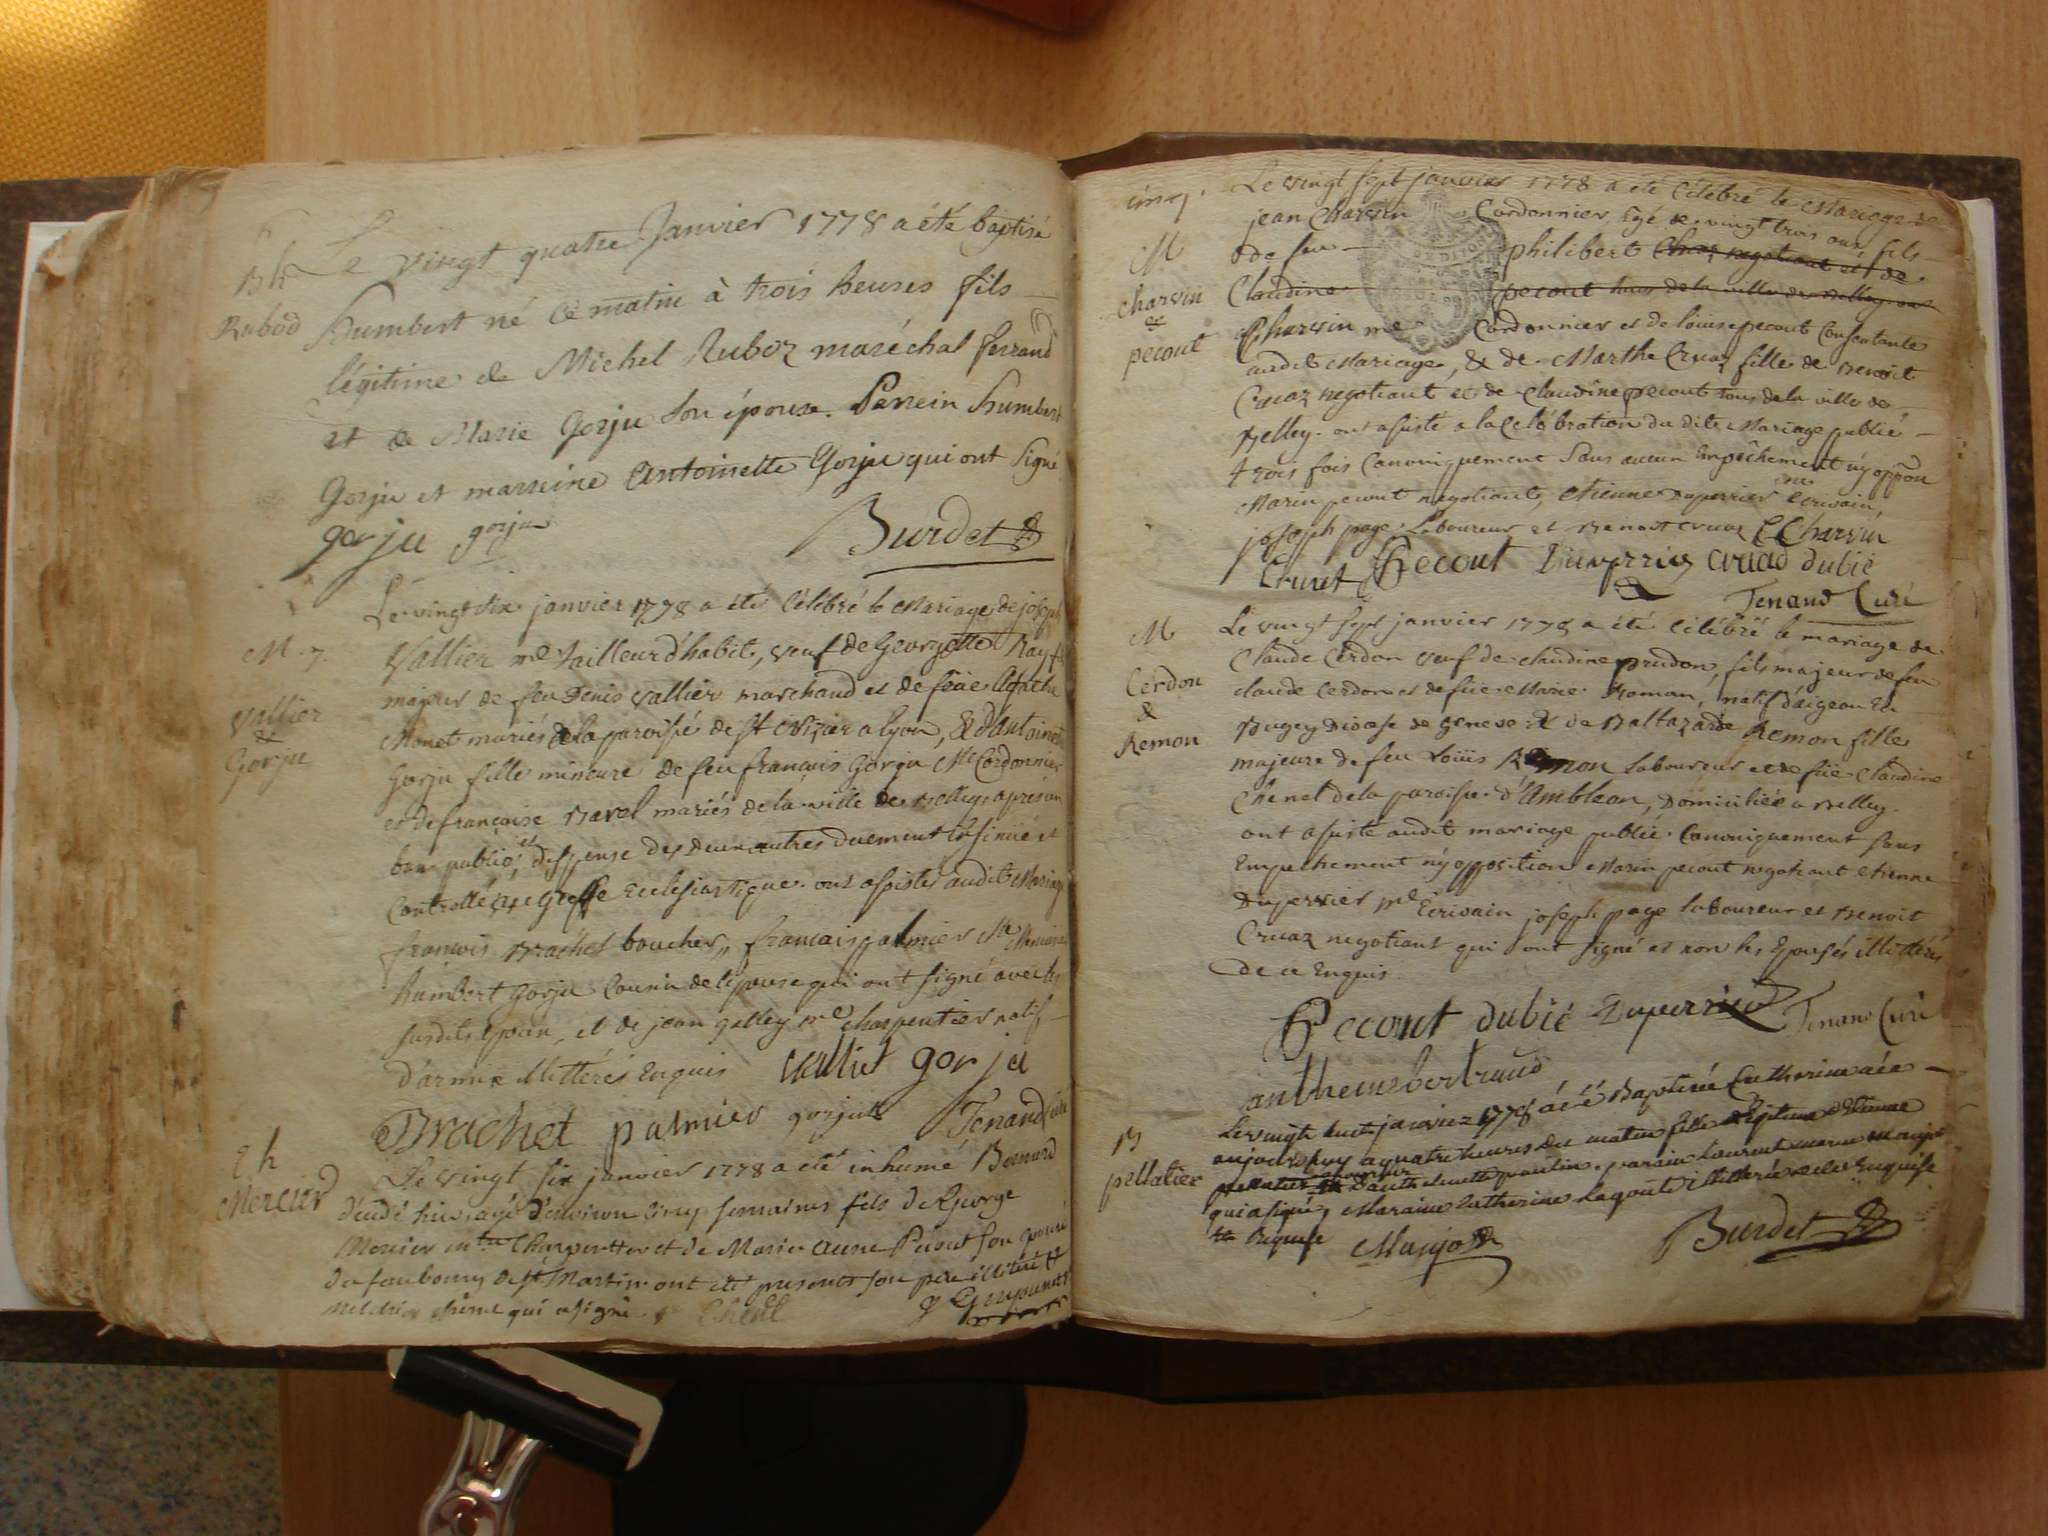 6
Bh
Rubod
Le vingt quatre Janvier 1778 a été baptisé
humbert né ce matin à trois heures fils
légitime de Michel Ruboz maréchal ferrand
et de Marie Gorju son épouse. Parrein humbert
Gorju et marreine Antoinette Gorju qui ont signé
gorju gorju Burdet
M. 7.
Vallier
&
Gorju
Le vingt six janvier 1778 a été célébré le Mariage de joseph
Vallier me tailleur d'habits, veuf de Georgette Ray f
majeur de feu Denis vallier marchand et de feüe Agathe
Monet mariés de la paroisse de st Nizier a lyon, & d'Antoinette
Gorju fille mineure de feu francois Gorju Me Cordonnier
et de francoise Ravel mariés de la ville de Belley, apres un
ban publié, et dispense des deux autres duement insinüé et
Controllé au Greffe Ecclesiastique. ont assisté audit Mariage
francois Brachet boucher, francois palmier Me Menuisier
humbert Gorju Cousin de l'epouse qui ont signé avec les
susdits Epoux, et de jean galley me charpentier natif
d'armix illittérés Enquis Vallier gorju
Brachet palmier gorju Tenand Curé
Eh
Mercier
Le vingt six janvier 1778 a été inhumé Bernard
décédé hier agé d'environ cinq semaines fils de George
Mercier me Charpentier et de Marie Anne Pecout son epouse
du faubourg de st Martin ont été presents son pere illitéré et
qui a signé.
cinq.
M
Charvin
&
pecout
Le vingt sept janvier 1778 a été Célébré le Mariage de
jean Charvin Cordonnier, Agé de vingt trois ans fils
de feu philibert Cruaz negotiant et de
Claudine pecout tous de la ville de Belley ont
Charvin me Cordonnier et de louise pecout Consentante
audit Mariage, & de Marthe Cruaz fille de Benoit
Cruaz negotiant et de Claudine pecout tous de la ville de
Belley. ont assisté a la Célébration du dit Mariage publié
trois fois Canoniquement sans aucun Empêchement ny oppon
Marin pecout negotiant, Etienne Duperrier me Ecrivain,
joseph page Laboureur et Benoit cruaz Charvin
Pecout Duperrier cruaz dubié
Tenand Curé
M
Cerdon
&
Remon
Le vingt sept janvier 1778 a été Célébré le mariage de
Claude Cerdon veuf de claudine prudon, fils majeur de feu
claude Cerdon et de feüe Marie Roman, natif d'aigeau En
Bugey Diocese de Geneve & de Baltazarde Remon fille
majeure de feu Loüis Remon laboureur et de feüe Claudine
Chenet de la paroisse d'Ambleon, Domiciliée a Belley.
ont assisté audit mariage publié Canoniquement sans
Empechement ny opposition Marin pecout negotiant Etienne
Duperrier me Ecrivain joseph page laboureur et Benoit
Cruaz negotiant qui ont signé et non les Epousés illittérés
de ce Enquis.
Pecout dubié Duperrier Tenand Curé
anthelme bertrand
B
pellatier
Le vingt huit janvier 1778 a été Baptisée Catherine née
aujourdhuy a quatre heures du matin fille légitime d'Etienne
pellatier et d'anthelmette poulin. parain Laurent marin Maujot
qui a signé, Maraine Catherine Lagoute illitterée de ce Enquise
Requise Maujot Burdet